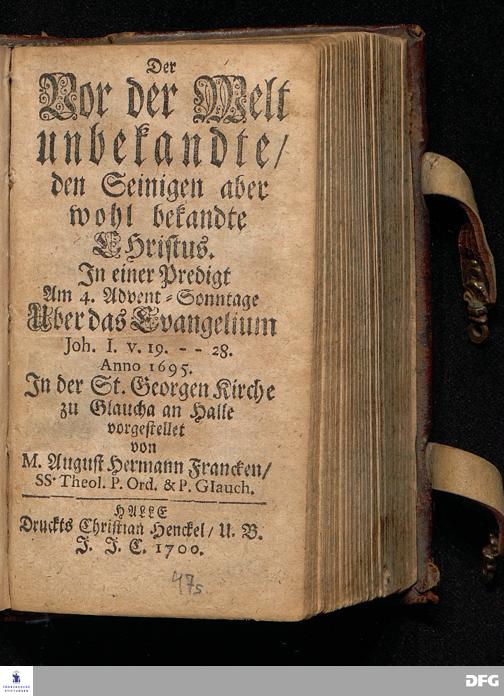 Der
Vor der Welt
unbekandte/
den Seinigen aber
wohl bekandte
CHristus.
In einer Predigt
Am 4. Advent-Sonntage
Uber das Evangelium
Joh. I. v. 19. - - 28.
Anno 1695.
In der St. Georgen Kirche
zu Glaucha an Halle
vorgestellet
von
M. August Hermann Francken/
SS. Theol. P. Ord. & P. Glauch.
HALLE
Druckts Christian Henckel/ U. B.
J. J. C. 1700.
475
FRANCKESCHE
STIFTUNGEN
DFG